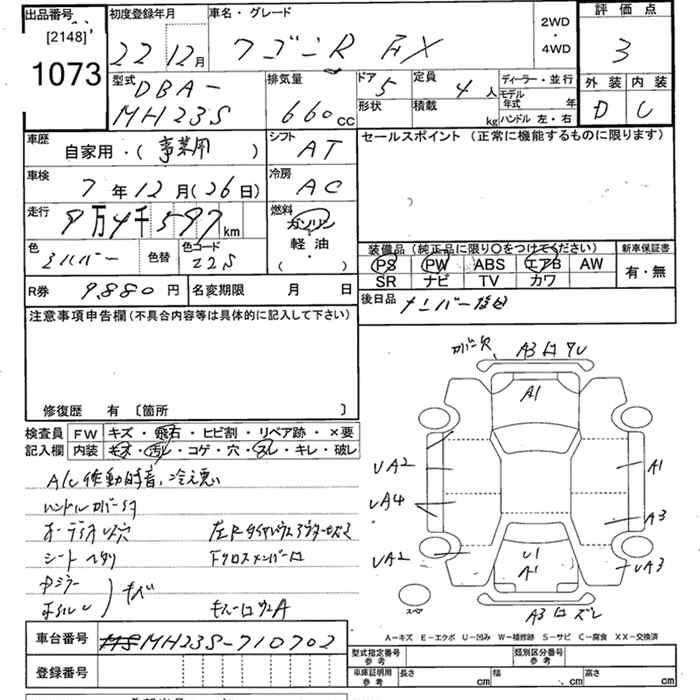 出品番号 初度登録年月 車名・グレード 2WD・4WD 評価点
[2148]
1073 22 12月 ワゴンR FX 3
型式 排気量 ドア 定員 ディーラー・並行 外装 内装
DBA-
MH23S 660cc 5 4人 モデル年式 年 D C
形状 積載 kg ハンドル 左・右
車歴 シフト セールスポイント (正常に機能するものに限ります)
自家用・( 事業用 ) AT
車検 冷房
7年12月(26日) AC
走行 燃料
9万4千597km ガソリン
色 色替 色コード 軽油
シルバー Z2S ( ・ )
装備品 (純正品に限り○をつけてください) 新車保証書
PS PW ABS エアB AW 有・無
SR ナビ TV カワ
R券 9,880円 名変期限 月 日 後日品 ナンバー
注意事項申告欄(不具合内容等は具体的に記入して下さい)
修復歴 有 〔箇所 〕
検査員 FW キズ・飛石・ヒビ割・リペア跡・×要
記入欄 内装 キズ・汚レ・コゲ・穴・スレ・キレ・破レ
A/C作動時音、冷え悪い
ハンドルカバー
オーディオ ビス穴
シート ヘタリ Fクロスメンバー
中ミラー
A3
A1
UA2 A1
UA4 A3
UA2 U1 UA3
A1
スペア A3 ズレ
A-キズ E-エクボ U-凹み W-補修跡 S-サビ C-腐食 XX-交換済
車台番号 MH23S-710702
型式指定番号 参考 類別区分番号 参考
登録番号 車庫証明用 参考 長さ cm 幅 cm 高さ cm